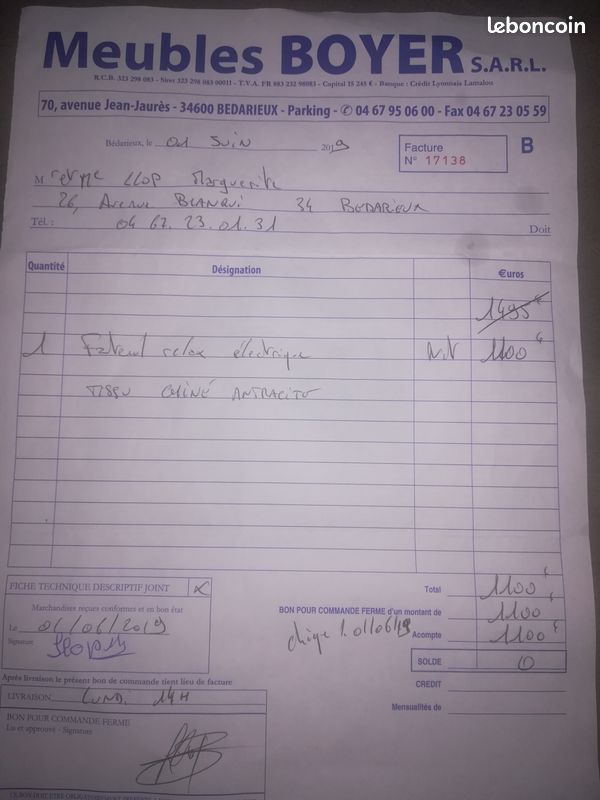 leboncoin
Meubles BOYER S.A.R.L.
R.C.B. 323 298 083 - Siret 323 298 083 00011 - T.V.A. FR 883 232 98083 - Capital 15 245 € - Banque : Crédit Lyonnais Lamalou
70, avenue Jean-Jaurès - 34600 BEDARIEUX - Parking - ✆ 04 67 95 06 00 - Fax 04 67 23 05 59
Bédarieux, le 01 Juin 2019
Facture
N° 17138
B
M LLOP Marguerite
26, Avenue BLANQUI 34 BEDARIEUX
Tél. : 04 67.23.01.31
Doit
Quantité Désignation €uros
1495 €
1 Fateuil relax électrique 1100 €
TISSU CHINÉ ANTRACITE
FICHE TECHNIQUE DESCRIPTIF JOINT X
Total 1100 €
Marchandises reçues conformes et en bon état
BON POUR COMMANDE FERME d'un montant de 1100
Le 01/06/2019
01/06/19 Acompte 1100 €
Signature
SOLDE 0
Après livraison le présent bon de commande tient lieu de facture
CREDIT
LIVRAISON LUNDI 14H
Mensualités de
BON POUR COMMANDE FERME
Lu et approuvé - Signature